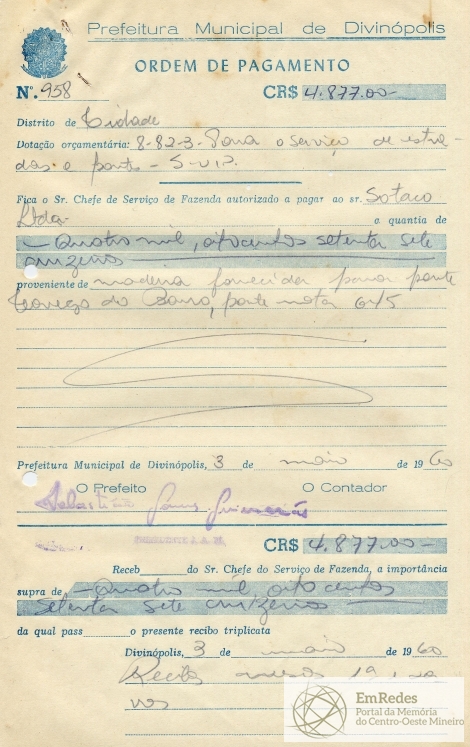 Prefeitura Municipal de Divinópolis
ORDEM DE PAGAMENTO
N.º 958 CR$ 4.877.00-
Distrito de Cidade
Dotação orçamentária: 8-82-3- Para o serviço de estra-
das e ponte - S.V.P.
Fica o Sr. Chefe de Serviço de Fazenda autorizado a pagar ao sr. Sotaco
Ltda. a quantia de
- Quatro mil, oitocentos setenta sete
cruzeiros
proveniente de madeira fornecida para ponte
Corrego do Barro, parte nota 6475
Prefeitura Municipal de Divinópolis, 3 de maio de 1960
O Prefeito O Contador
Sebastião Gomes Guimarães
PRESIDENTE
CR$ 4.877.00-
Receb do Sr. Chefe do Serviço de Fazenda, a importância
supra de - Quatro mil oitocentos
setenta sete cruzeiros
da qual pass o presente recibo triplicata
Divinópolis, 3 de maio de 1960
EmRedes
Portal da Memória
do Centro-Oeste Mineiro